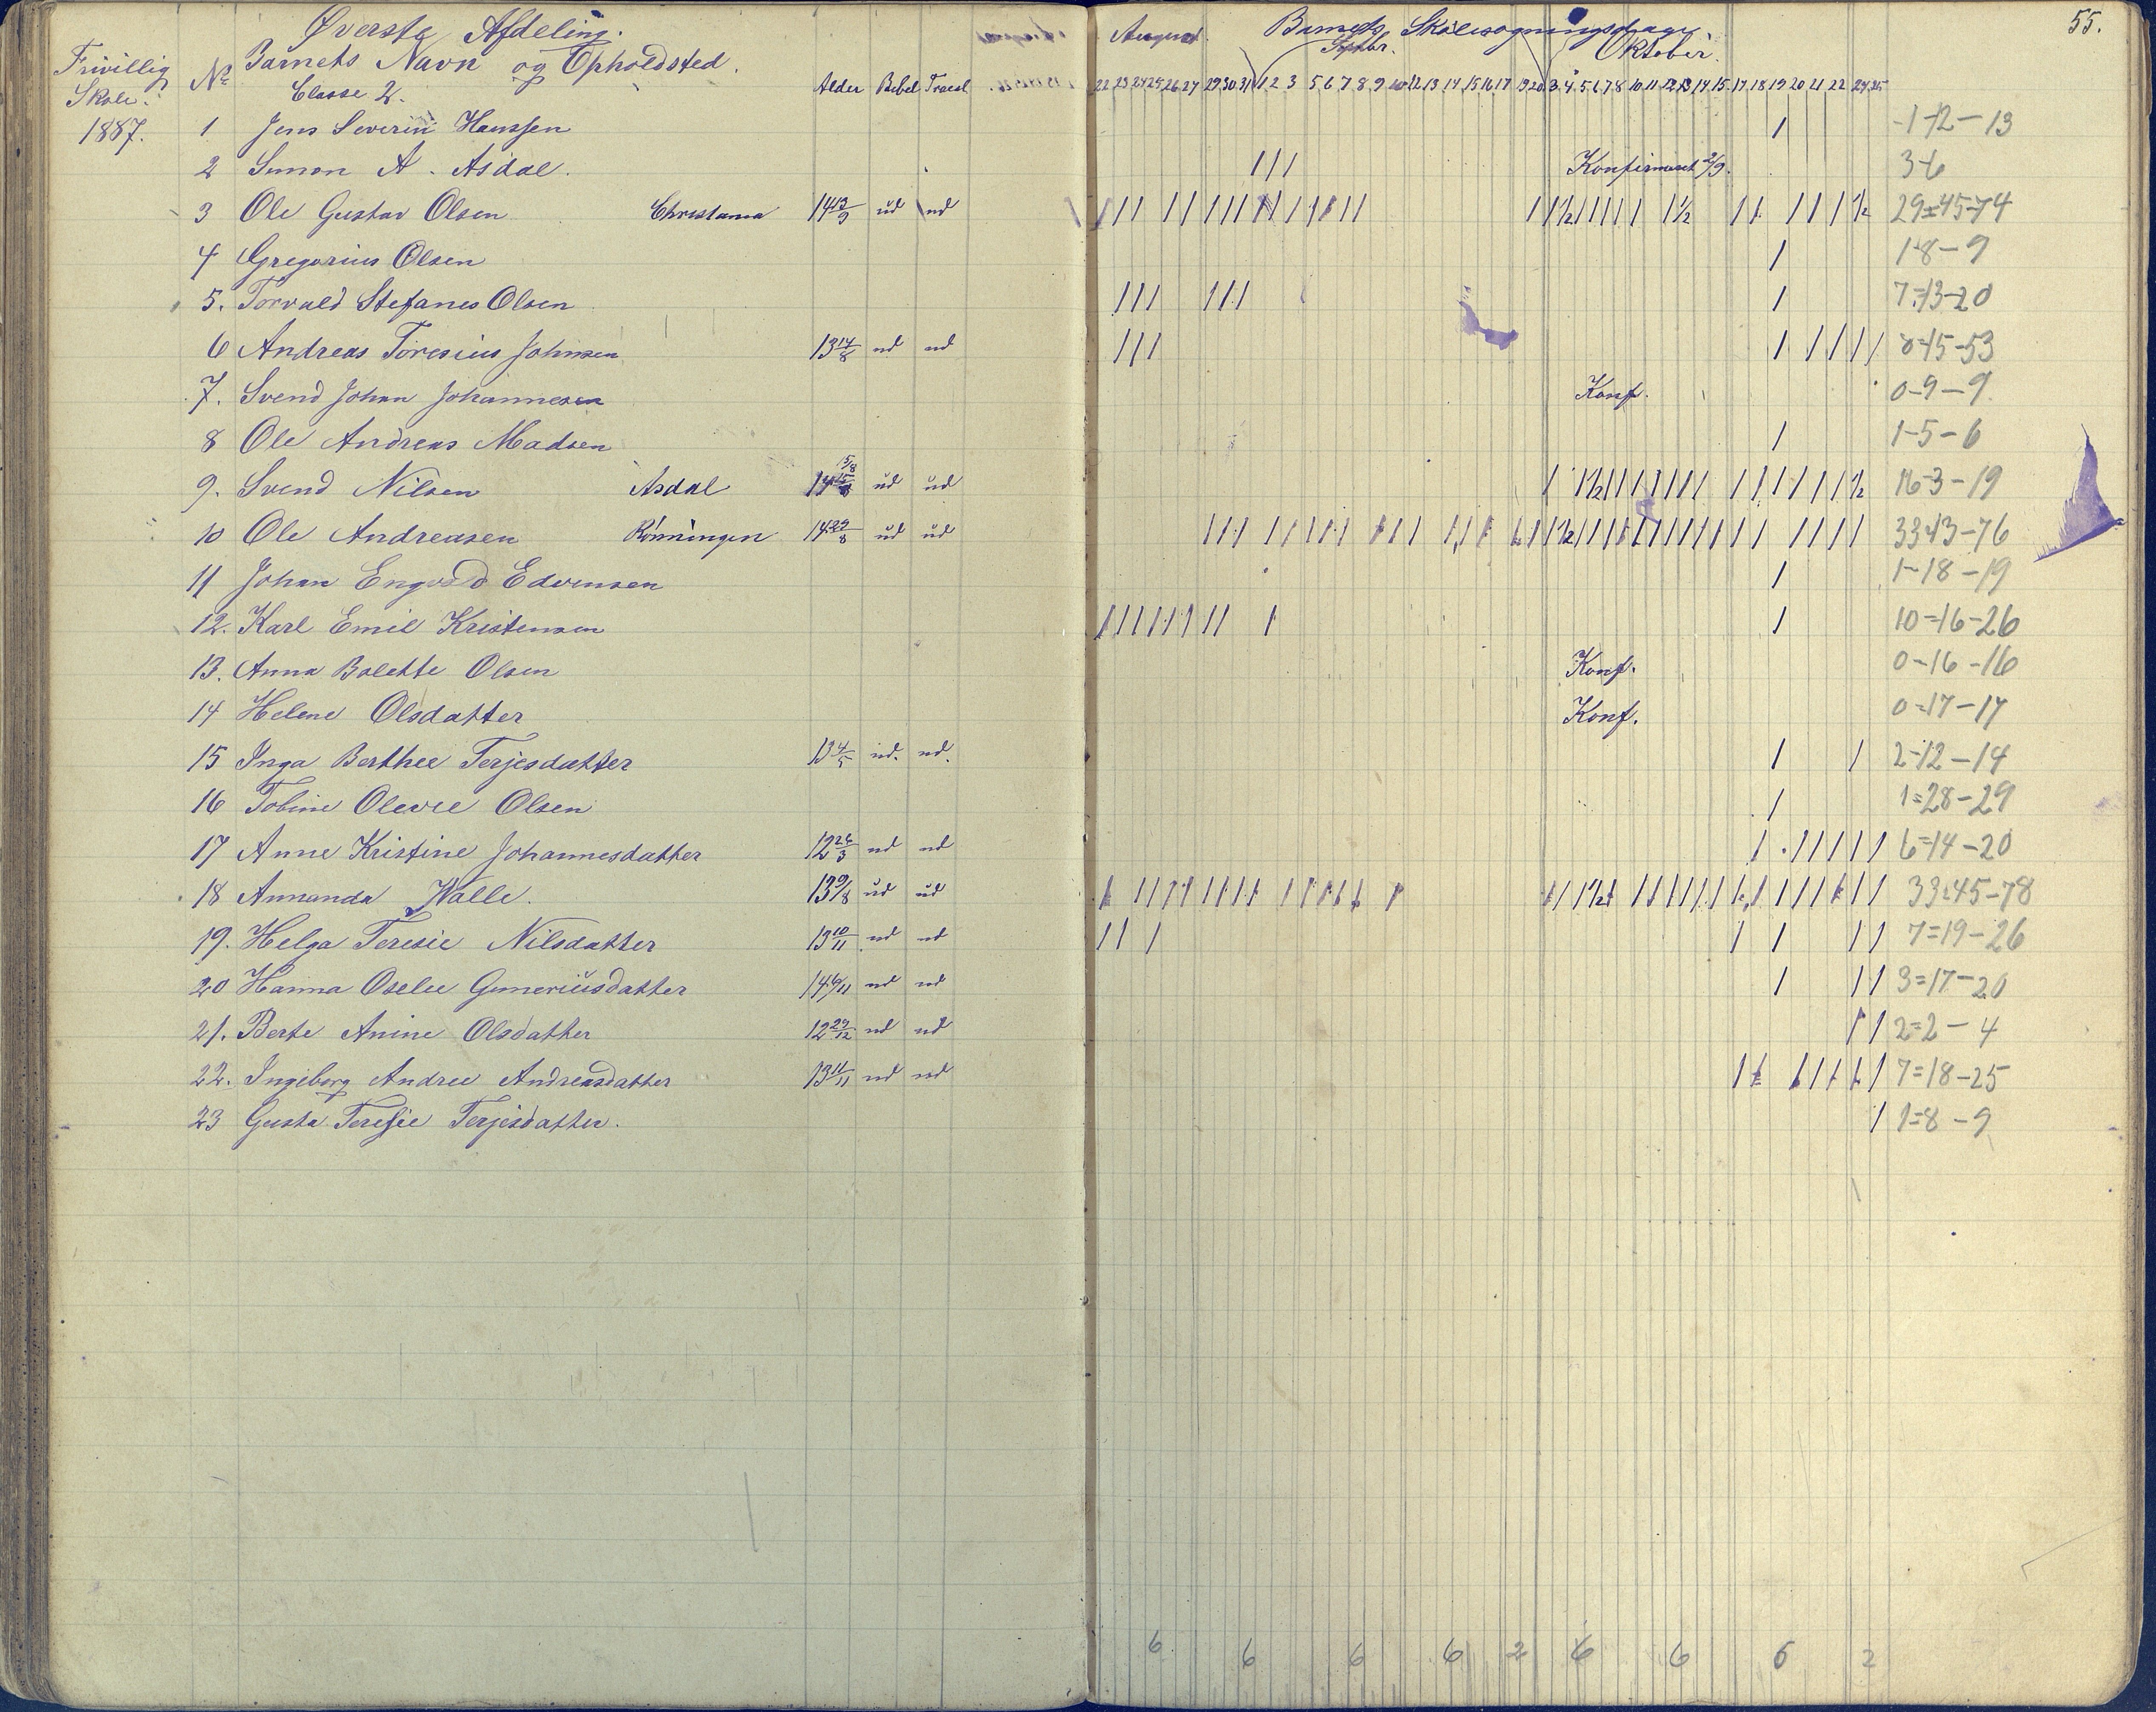 Øverste Afdeling.
Frivillig Skole. 1887.
No Barnets Navn og Opholdsted. Alder Bibel Troesl
Classe 2.
August Septbr. Barnets Skolesøgningsdage Oktober. 55.
22 23 24 25 26 27 29 30 31 1 2 3 5 6 7 8 9 10 12 13 14 15 16 17 19 20 3 4 5 6 7 8 10 11 12 13 14 15 17 18 19 20 21 22 24 25
1 Jens Severin Hanssen 1-12-13
2 Simon A. Asdal. Konfirmeret 2/9. 3-6
3 Ole Gustav Olsen Christiania 14 13/9 ud ud 29=45-74
4 Gregorius Olsen 1-8-9
5. Torvald Stefanes Olsen 7=13-20
6 Andreas Toresius Johnsen 13 14/8 ud ud 8=45-53
7. Svend Johan Johannesen Konf. 0-9-9
8 Ole Andreas Madsen 1-5-6
9. Svend Nilsen Asdal 14 15/8 ud ud 16-3-19
10 Ole Andreasen Rönningen 14 29/8 ud ud 33=43-76
11 Johan Engvald Edvensen 1-18-19
12. Karl Emil Kristensen 10=16-26
13. Anna Bolette Olsen Konf. 0-16-16
14 Helene Olsdatter Konf. 0=17-17
15 Inga Berthee Terjesdatter 13 4/5 ud. ud. 2-12-14
16 Tobine Olevie Olsen 1=28-29
17 Anne Kristine Johannesdatter 12 26/3 ud ud 6=14-20
18 Annanda Walle. 13 9/8 ud ud 33=45-78
19. Helga Teresie Nilsdatter 13 10/11 ud ud 7=19-26
20 Hanna Oselie Guneriusdatter 14 6/11 ud ud 3=17-20
21. Berte Anine Olsdatter 12 29/12 ud ud 2=2-4
22. Ingeborg Andree Andreasdatter 13 11/11 ud ud 7=18-25
23 Gusta Teresie Terjesdatter. 1=8-9
6 6 6 6 2 6 6 6 2